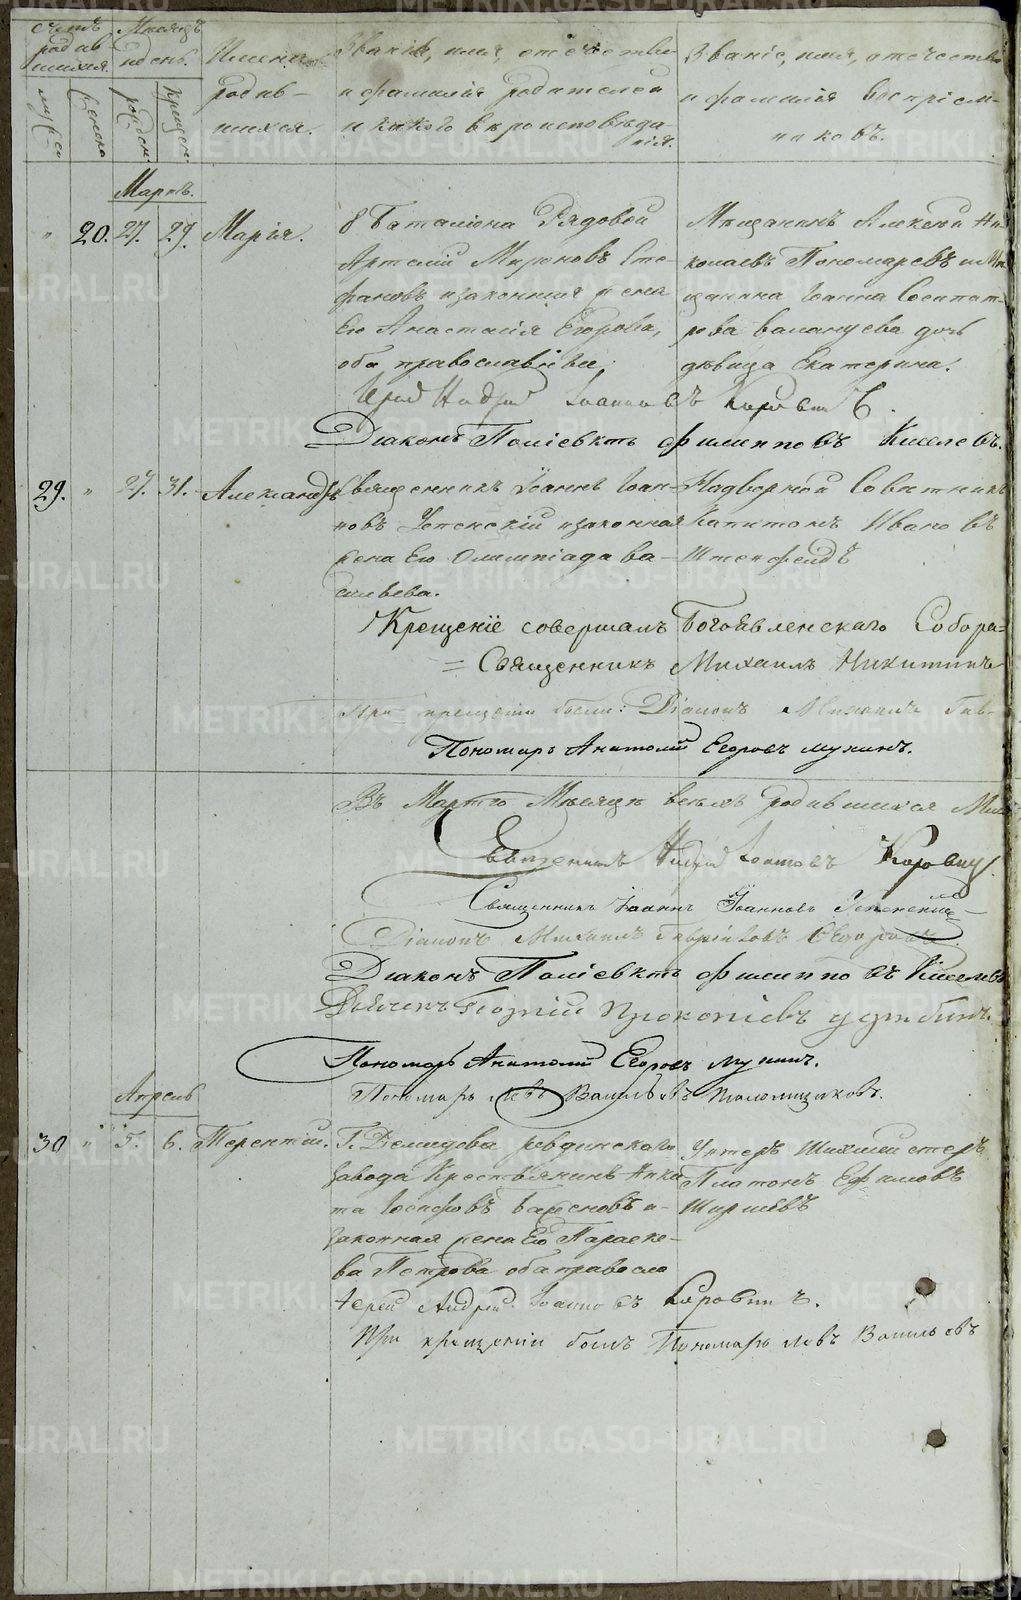 Счетъ родив-шихся.
Мѣсяцъ и день.
Имена родив-шихся.
Званіе, имя, отечество и фамилія родителей и какого вѣроисповѣданія.
Званіе, имя, отечество и фамилія воспріем-никовъ.
муж. женска рожден. крещен.
Мартъ.
" 20. 27. 29. Марія.
8 Баталіона Рядовой
Артемій Мироновъ Сте-
фановъ и законная жена
Его Анастасія Егорова,
оба православные.
Мѣщанинъ Алексѣй Ни-
колаевъ Пономаревъ и Мѣ-
щанина Іоанна
дочь
дѣвица Екатерина.
Іерей Андрей Іоанновъ Коровинъ.
Діаконъ Поліевктъ Филипповъ Киселевъ.
29. " 27. 31. Александръ
Священникъ Іоаннъ Іоан-
новъ Успенскій и законная
жена Его Олимпіада Ва-
сильева.
Надворный Совѣтникъ
Капитонъ Ивановъ
Штенфельдъ
Крещеніе совершалъ Богоявленскаго Собора
Священникъ Михаилъ Никитинъ
При крещеніи были: Діаконъ Михаилъ Гав-
Пономарь Анатолій Егоровъ Мухинъ.
Въ Мартѣ Мѣсяцѣ всѣхъ родившихся
Священникъ Андрей Іоанновъ Коровинъ.
Священникъ Іоаннъ Іоанновъ Успенскій
Діаконъ Михаилъ Гавріиловъ
Діаконъ Поліевктъ Филипповъ Киселевъ
Дьячекъ Прокопіевъ
Пономарь Анатолій Егоровъ Мухинъ.
Пономарь Левъ Васильевъ
Апрель
30 " 5. 6. Терентій.
Г. Демидова Ревдинскаго
завода Крестьянинъ Ники-
та Іосифовъ и
законная жена Его Параске-
ва Петрова оба правосла
Унтеръ Шихмистеръ
Платонъ Ефимовъ
Ширяевъ
Іерей Андрей Іоанновъ Коровинъ.
При крещеніи былъ Пономарь Левъ Васильевъ
METRIKI.GASO-URAL.RU